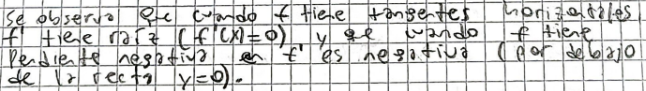 Se observa qe cuando f tiene tangentes horizontales
f' tiene raíz (f'(x)=0) y qe cuando f tiene
Pendiente negativa en f' es negativa (por debajo
de la recta y=0).